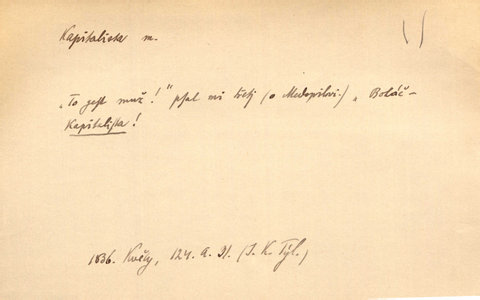 Kapitalista m.
„To jest muž!“ psal mi třetj (o Medopilovi.) „Boháč-
kapitalista!
1836. Květy, 124. a. Jl. (J. K. Tyl.)